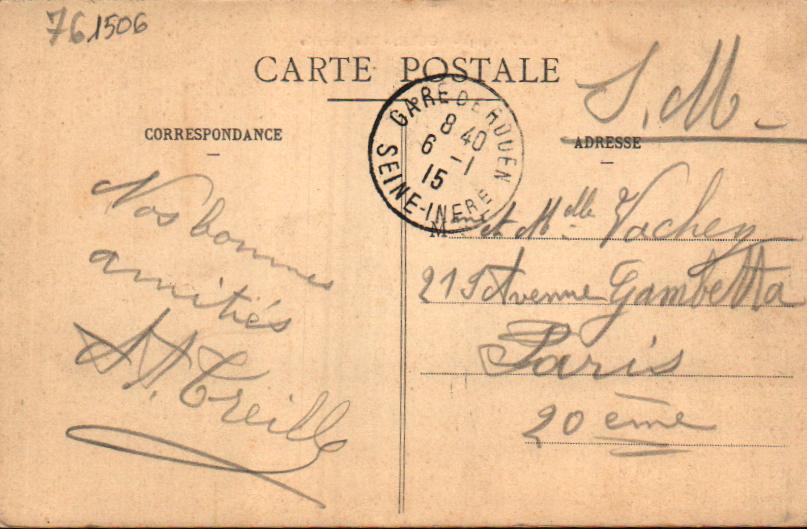 76 1506
CARTE POSTALE
S. M.
CORRESPONDANCE
ADRESSE
GARE DE ROUEN
8 40
6 -1
15
SEINE-INFRE
Nos bonnes
amitiés
A. Treille
Mme et Melle Vacher
215 Avenue Gambetta
Paris
20 ème